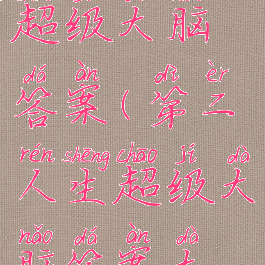 超级大脑
dá àn dì èr
答案(第二
rén shēng chāo jí dà
人生超级大
nǎo dá àn dà
脑答案大